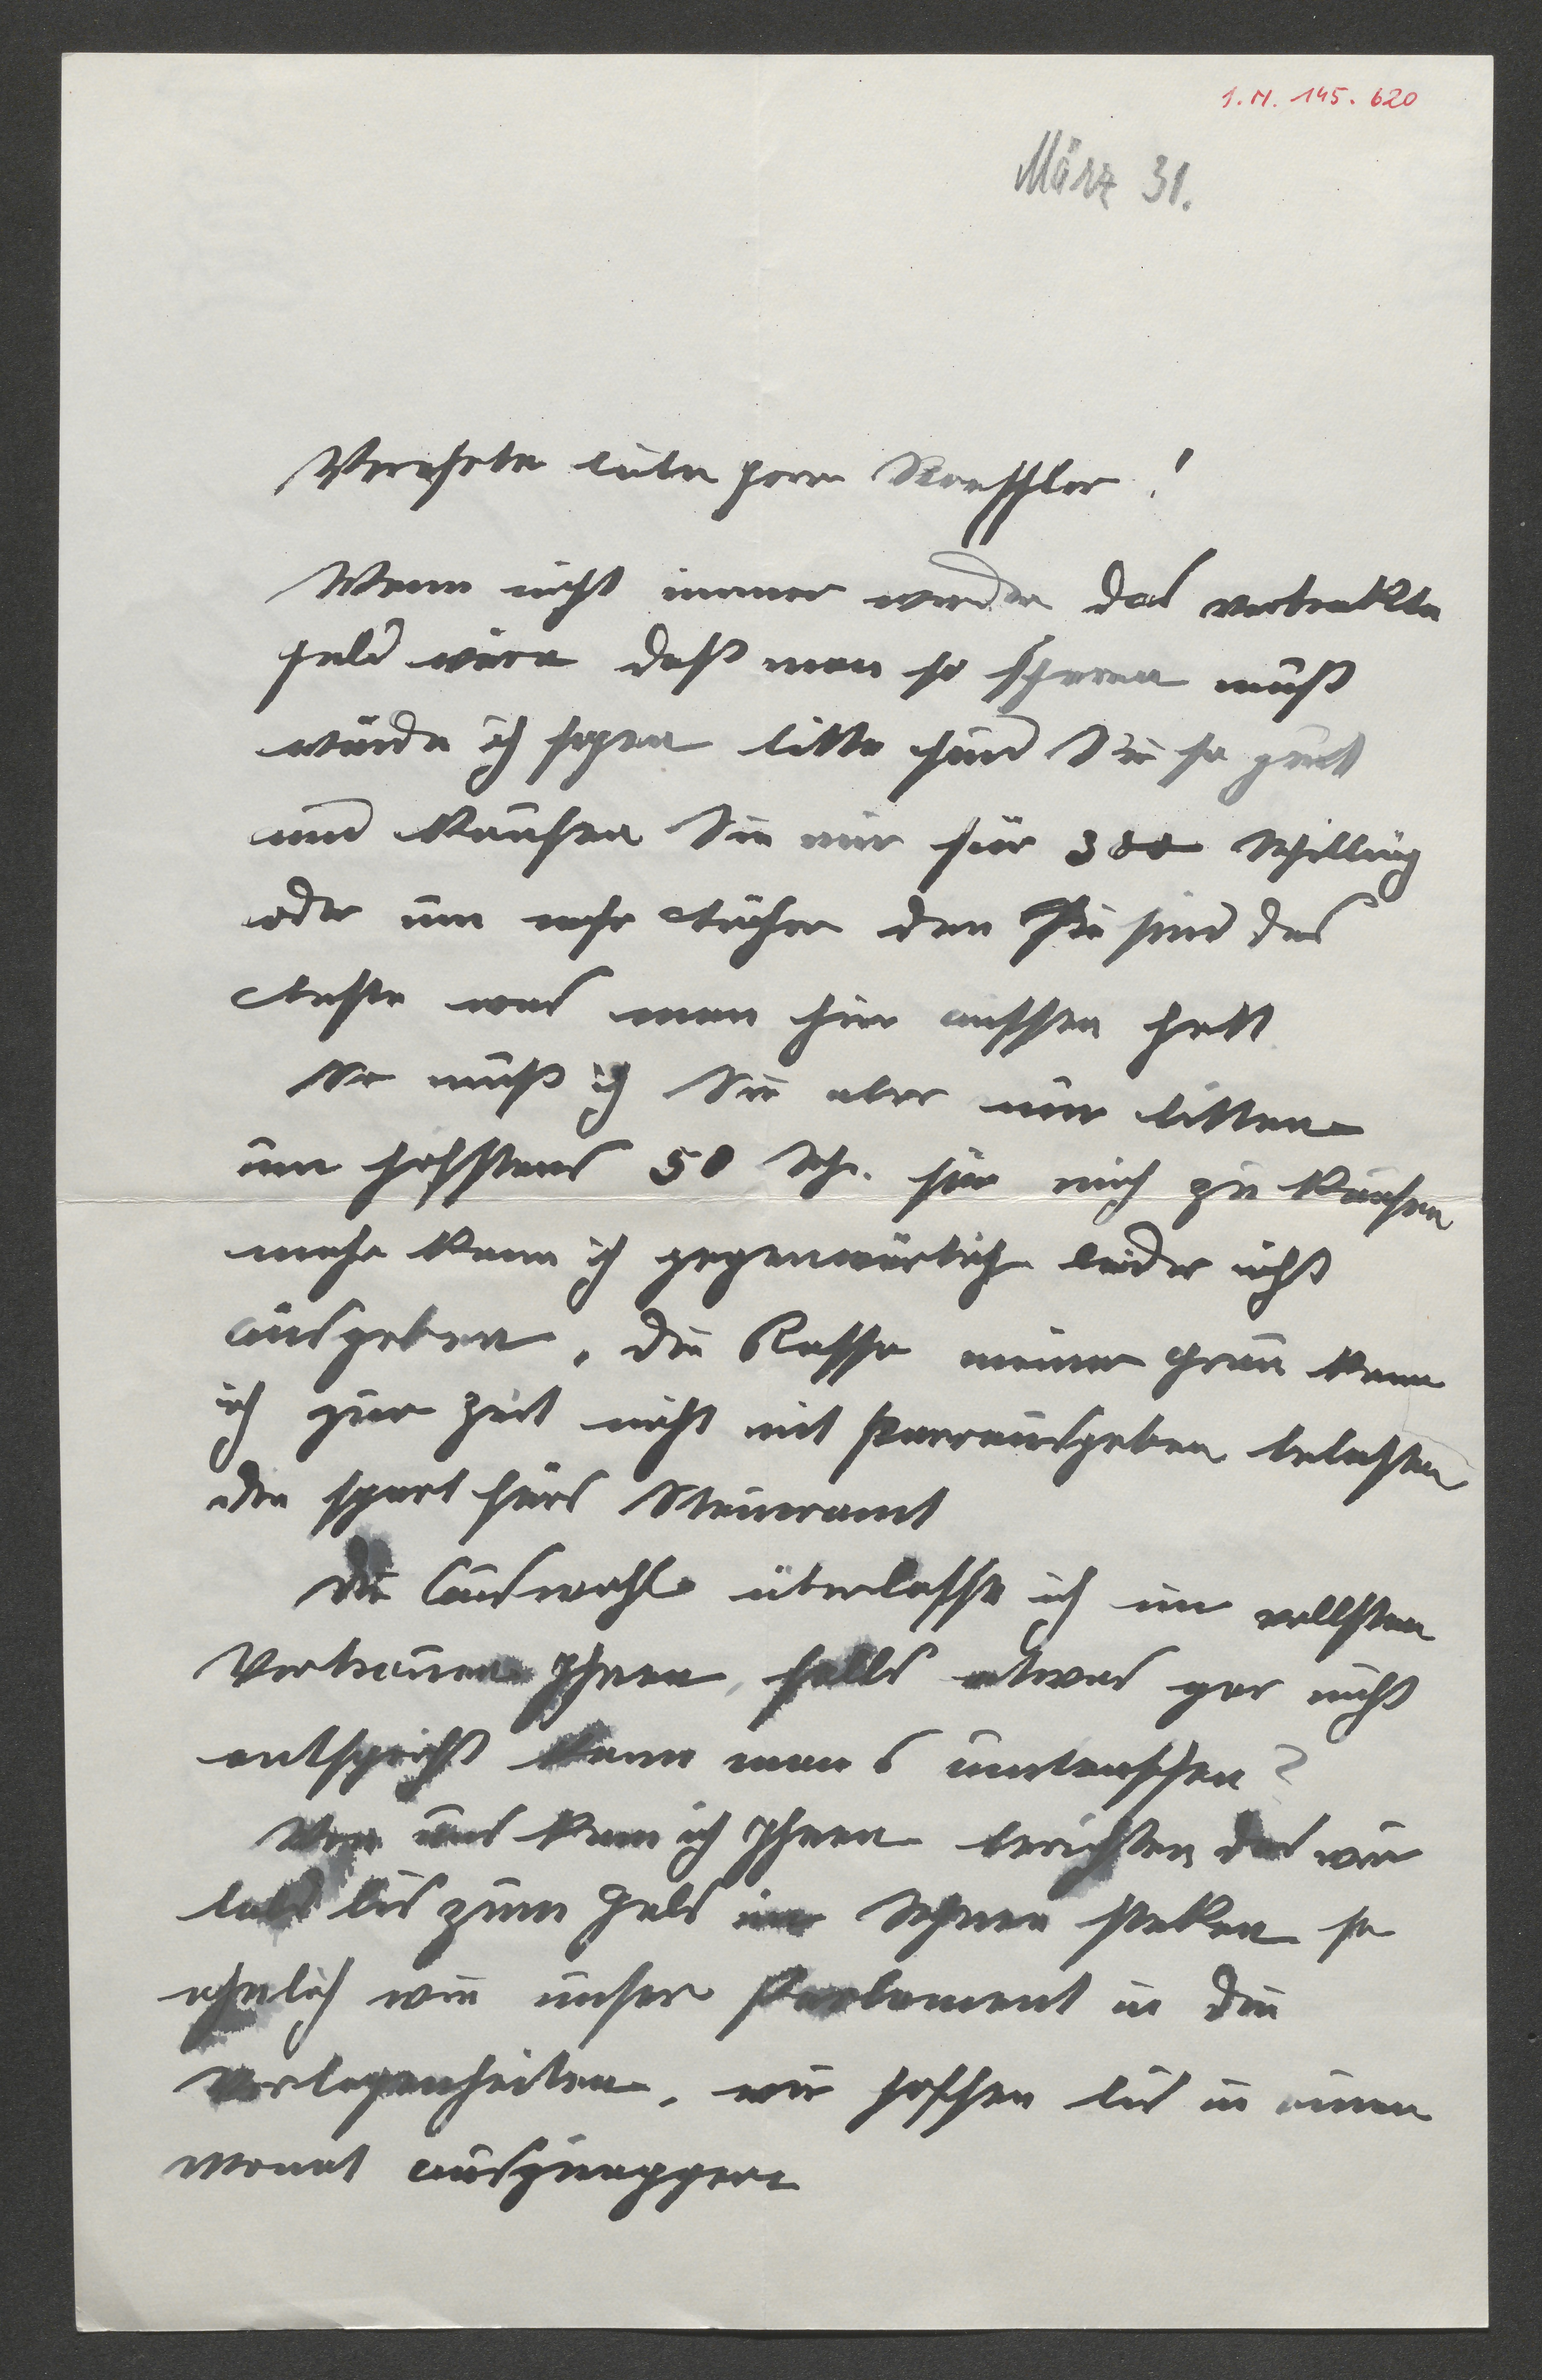 I.N. 145.620
März 31.
Verehrte liebe Frau Stoessler!
Wenn nicht immer wieder das vertrakte
Geld wäre daß man so sparen muß
würde ich sagen bitte sind Sie so gut
und kaufen Sie mir für 300 Schilling
oder um mehr Bücher den Sie sind das
Beste was man hier aussen hatt
So muß ich Sie aber nur bitten
um höchstens 50 Sch. für mich zu kaufen
mehr kann ich gegenwärtig leider nicht
ausgeben, die Kassa meiner Frau kann
ich zur Zeit nicht mit Parausgaben belasten
die spart fürs Steueramt
Die Auswahl überlasse ich im vollsten
Vertrauen Ihnen, falls etwas gar nicht
entspricht kann man s umtauschen?
Von uns kann ich Ihnen berichten das wir
bald bis zum Hals im Schnee steken so
ähnlich wie unser Parlament in die
Verlegenheiten, wir hoffen bis in einen
Monat auszuappern